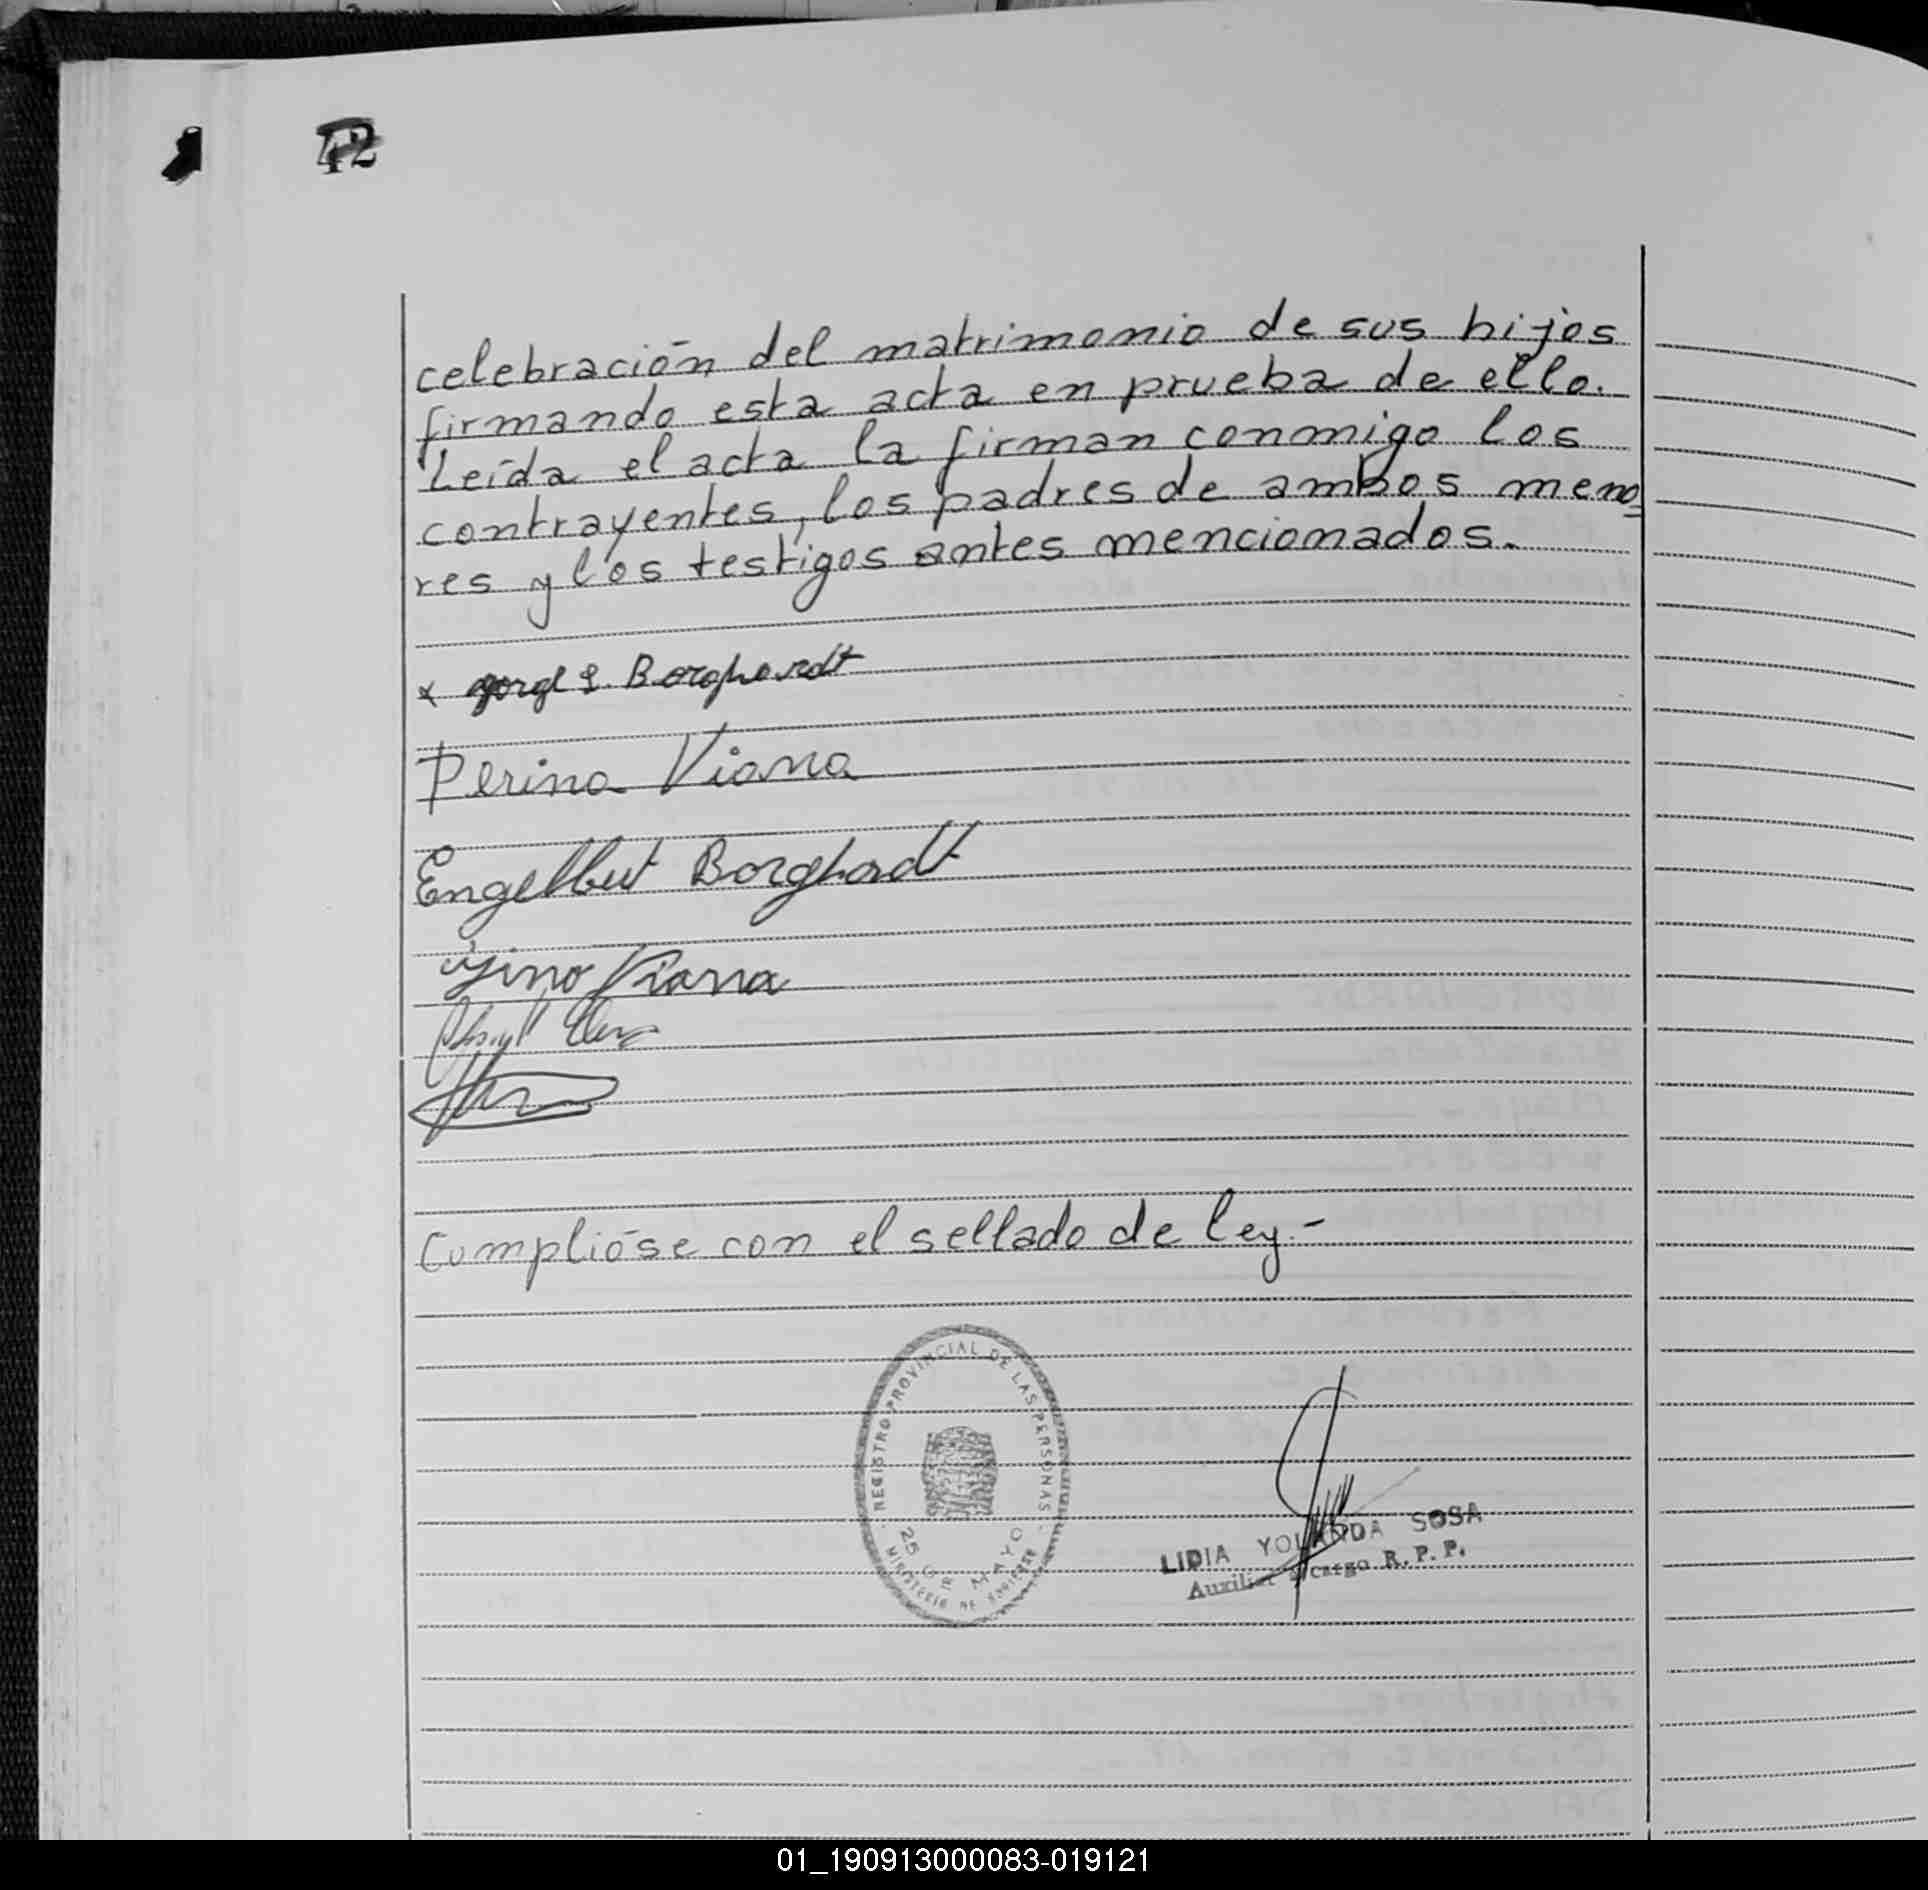 42
celebración del matrimonio de sus hijos
firmando esta acta en prueba de ello.
Leída el acta la firman conmigo los
contrayentes, los padres de ambos meno=
res y los testigos antes mencionados.-
x Jorge L. Borghardt
Perina Viana
Engelbert Borghardt
Gino Viana
Cumplióse con el sellado de ley.-
REGISTRO PROVINCIAL DE LAS PERSONAS
25 DE MAYO
MINISTERIO DE GOBIERNO
LIDIA YOLANDA SOSA
Auxiliar a cargo R. P. P.
01_190913000083-019121